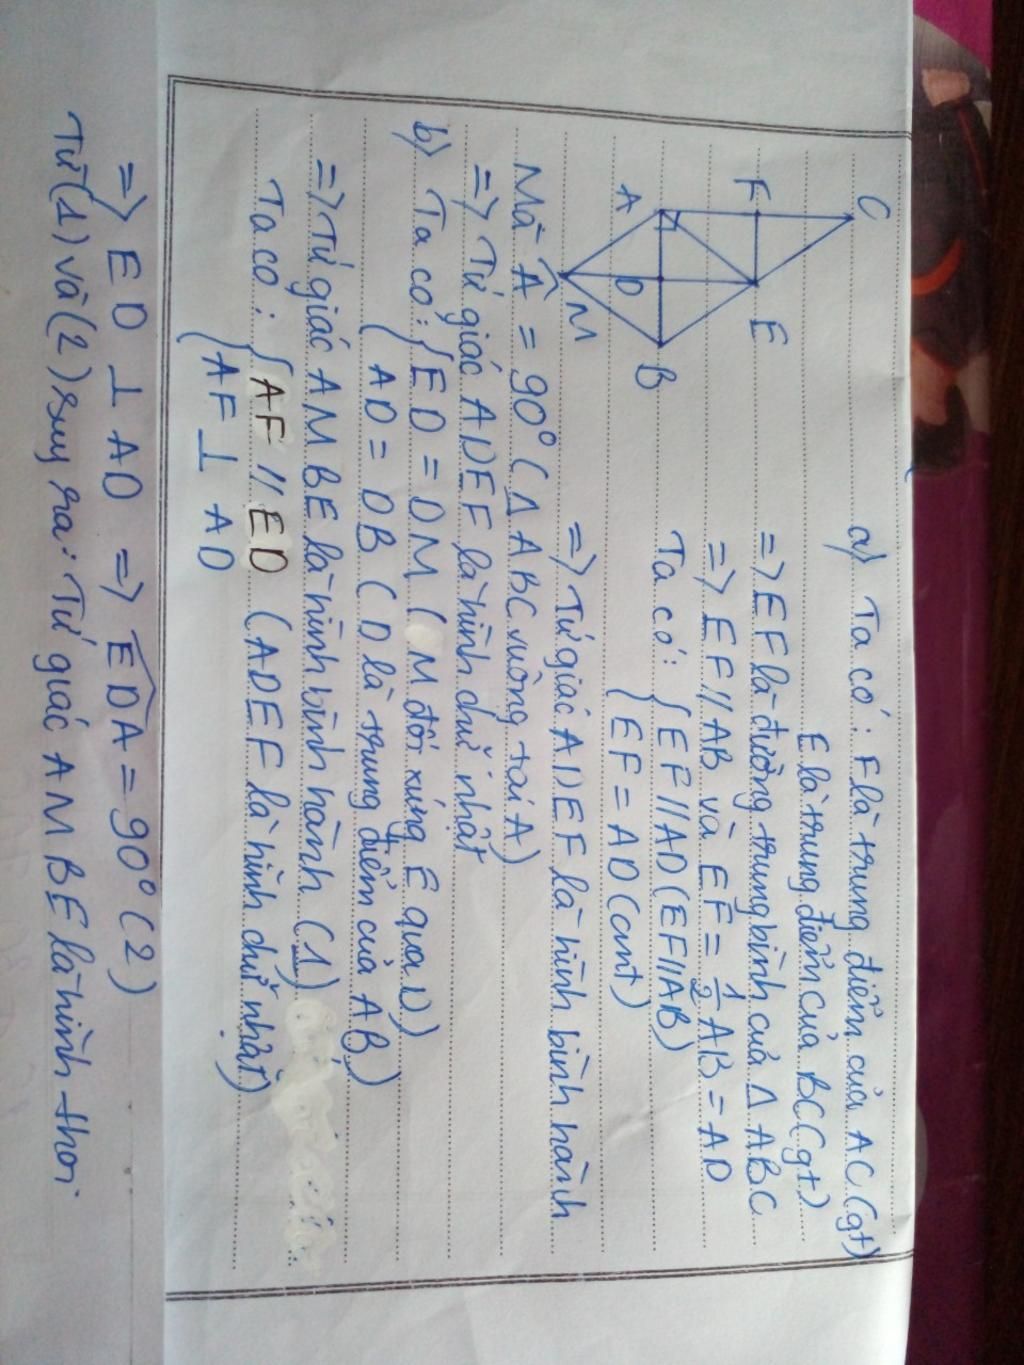 C
F
E
A
D
B
M
a) Ta có: F là trung điểm của AC (gt)
E là trung điểm của BC (gt)
=> EF là đường trung bình của Δ ABC
=> EF // AB và EF = 1/2 AB = AD
Ta có: { EF // AD (EF // AB)
{ EF = AD (cmt)
=> Tứ giác ADEF là hình bình hành
Mà Â = 90° (Δ ABC vuông tại A)
=> Tứ giác ADEF là hình chữ nhật
b) Ta có: { ED = DM (M đối xứng E qua D)
{ AD = DB (D là trung điểm của AB)
=> Tứ giác AMBE là hình bình hành (1)
Ta có: { AF // ED (ADEF là hình chữ nhật)
{ AF ⊥ AD
=> ED ⊥ AD => EDA = 90° (2)
Từ (1) và (2) suy ra: Tứ giác AMBE là hình thoi.